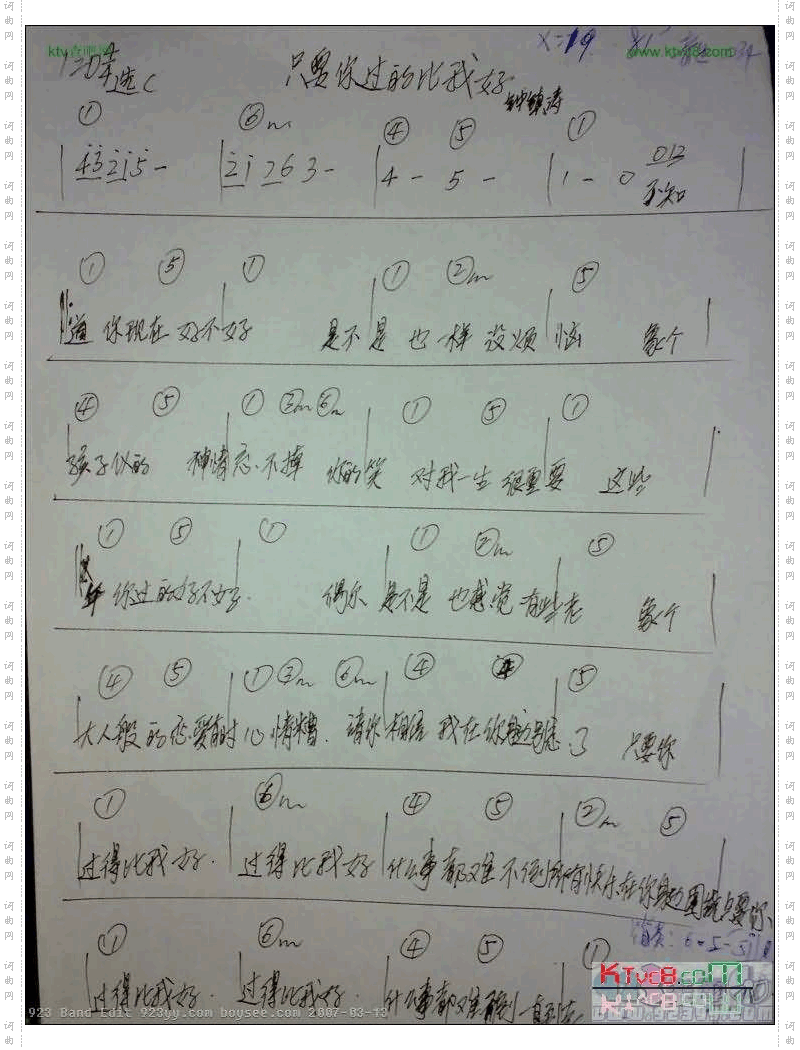 只要你过的比我好
钟镇涛
① ⑥m ④ ⑤ ①
4 - 5 - 1 - 0 012
不知
① ⑤ ① ① ②m ⑤
道 你现在 好不好 是不是 也一样 没烦恼 象个
④ ⑤ ① ③m ⑥m ① ⑤ ①
孩子似的 神情忘不掉 你的笑 对我一生 很重要 这些
① ⑤ ① ① ②m ⑤
年 你过的好不好 偶尔 是不是 也感觉 有些老 象个
④ ⑤ ① ③m ⑥m ④ ④ ⑤
大人般 的恋爱有时 心情糟 请你相信 我在你身边 只要你
① ⑥m ④ ⑤ ②m ⑤
过得比我好 过得比我好 什么事都难不倒所有快乐在你身边围绕只要你
① ⑥m ④ ⑤ ①
过得比我好 过得比我好 什么事都难不倒 一直到老
KTvc8.com
www.923yy.com
923 Band Edit 923yy.com boysee.com 2007-03-13
词曲网